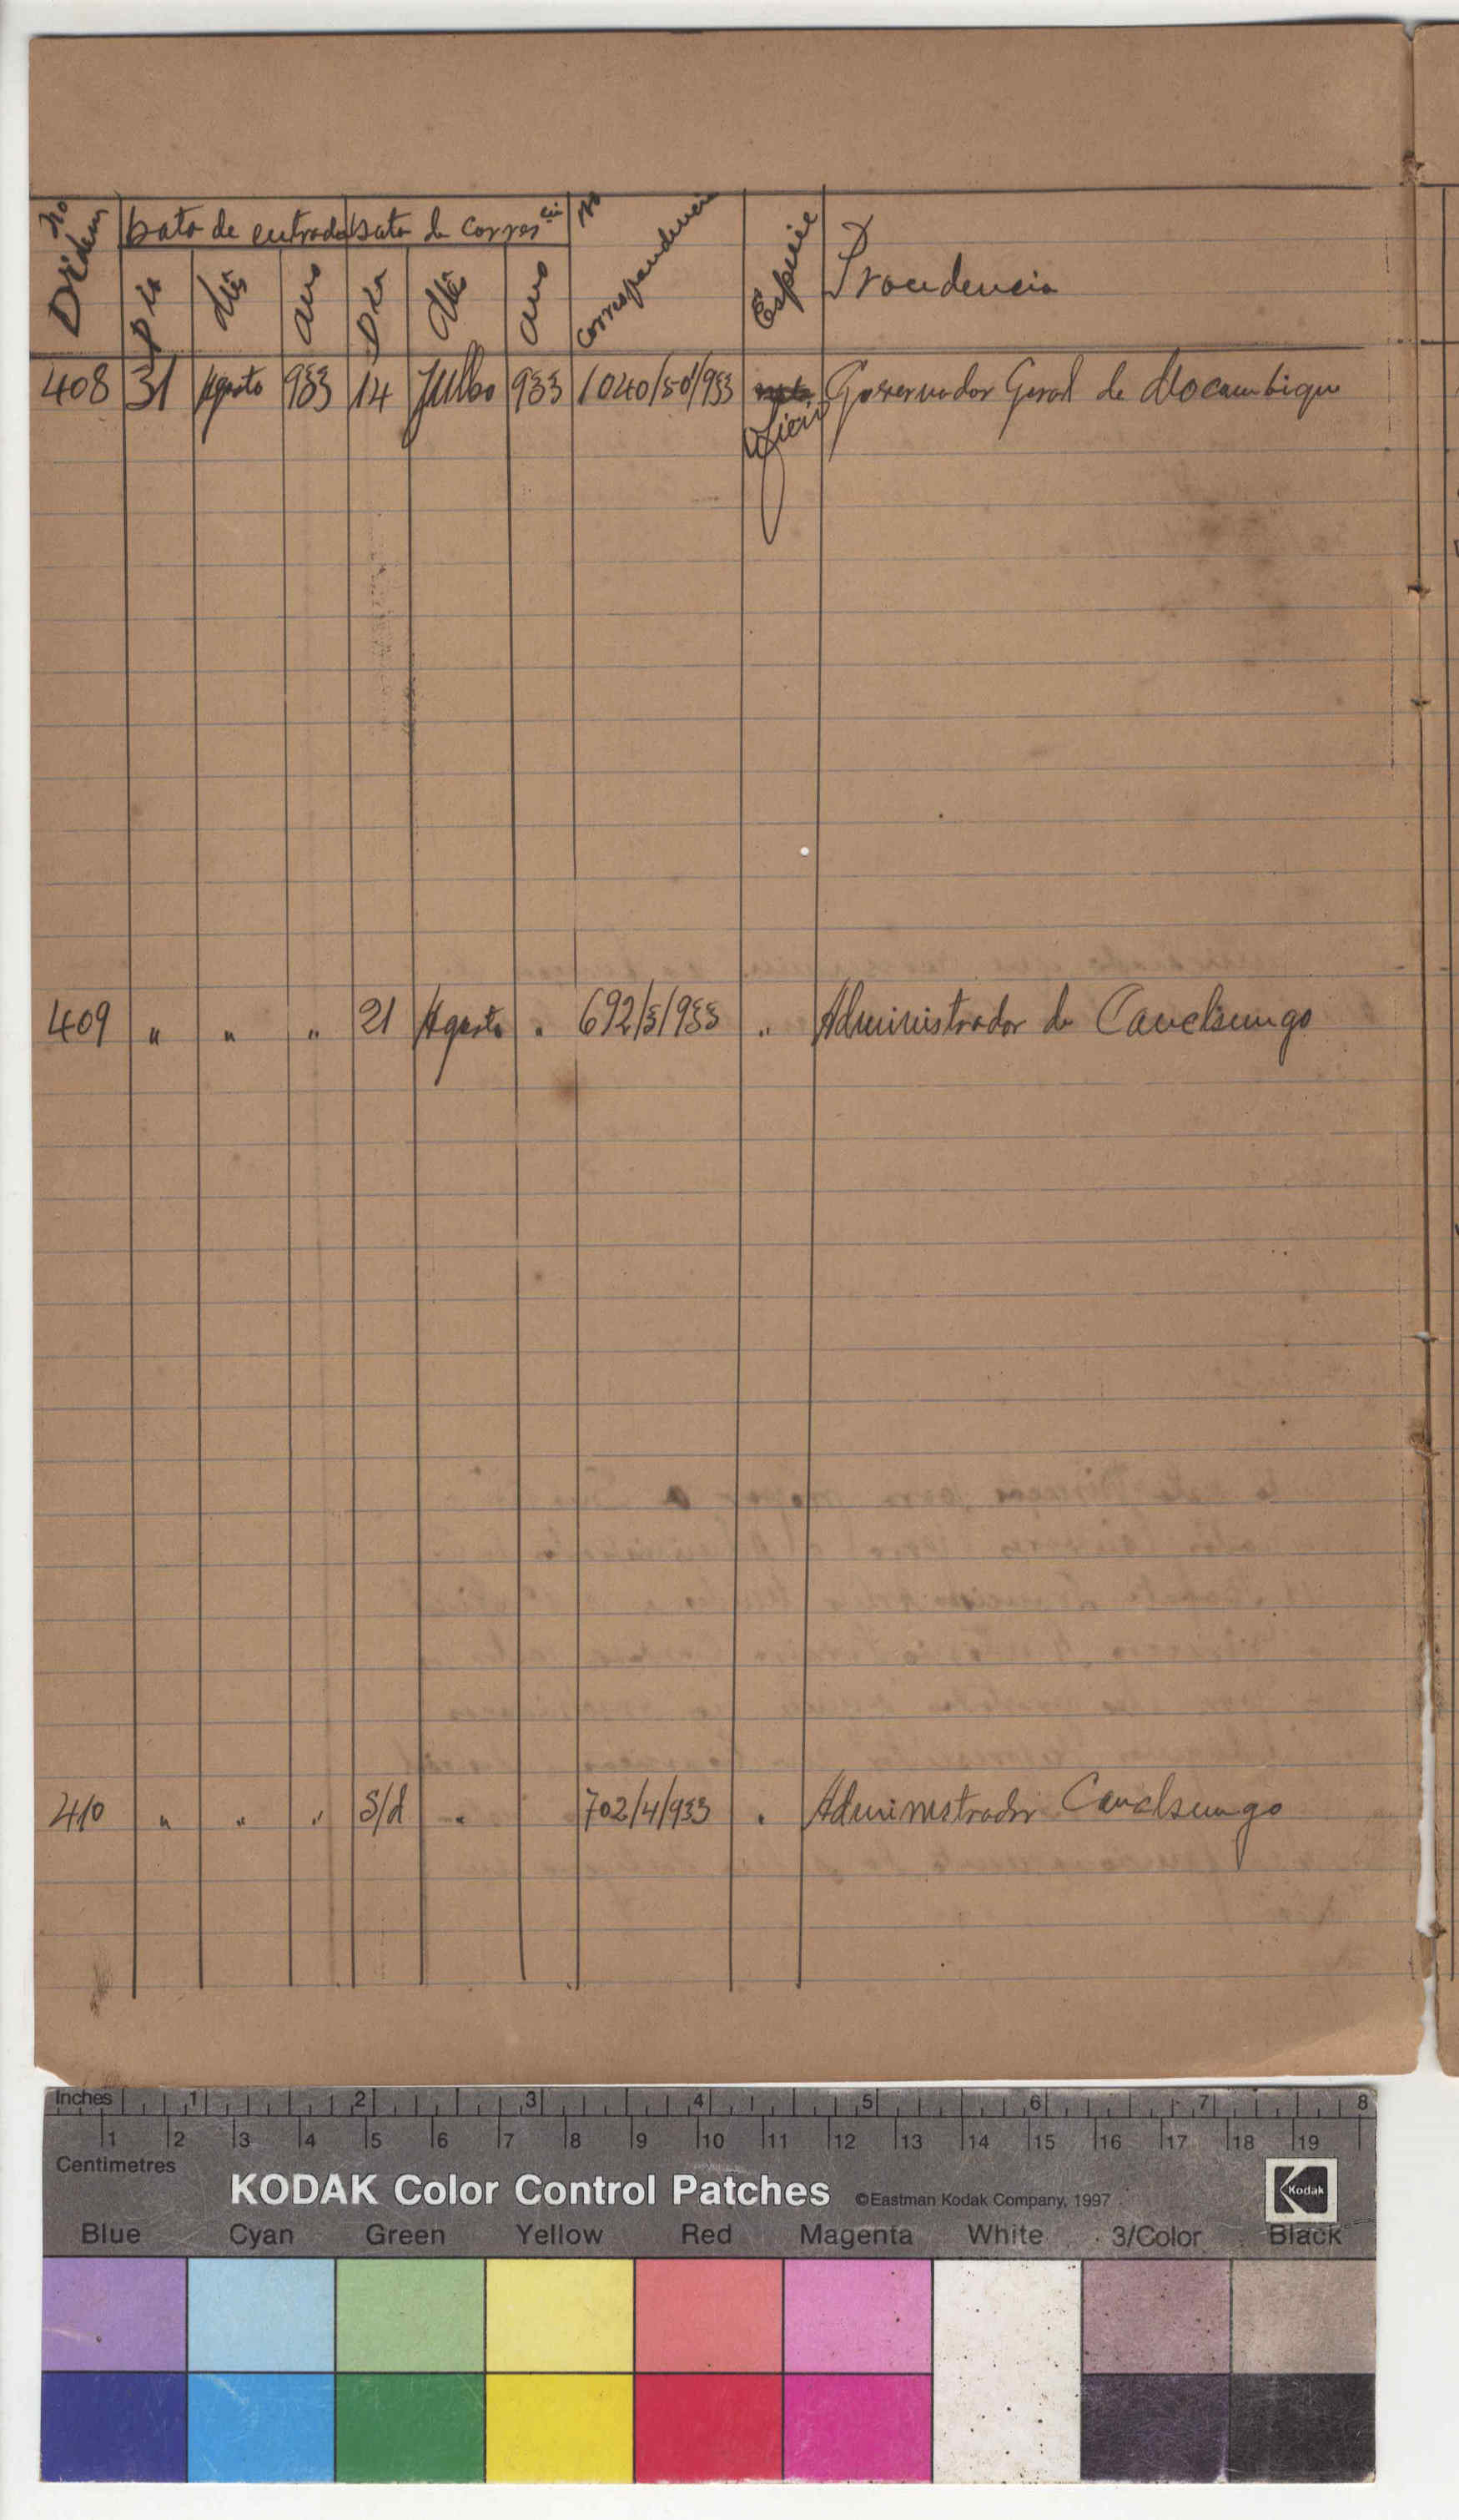 No Ordem Data de entrada Data de corres.cia No correspondencia Especie Procedencia
Dia Mês Ano Dia Mês Ano
408 31 Agosto 933 14 Julho 933 1040/50/933 nota Governador Geral de Mocambique
Oficio
409 " " " 21 Agosto " 692/5/933 " Administrador de Canchungo
410 " " " S/d " 702/4/933 " Administrador Canchungo
Inches 1 2 3 4 5 6 7 8
1 2 3 4 5 6 7 8 9 10 11 12 13 14 15 16 17 18 19
Centimetres
KODAK Color Control Patches ©Eastman Kodak Company, 1997 Kodak
Blue Cyan Green Yellow Red Magenta White 3/Color Black